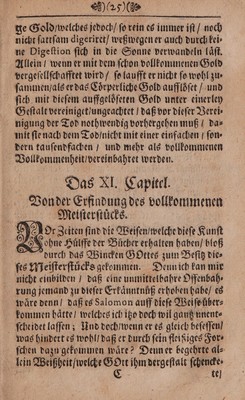 (25)
ge Gold/welches jedoch/ so rein es immer ist/ noch
nicht sattsam digeriret/ weßwegen er auch durch keine
Digestion sich in die Sonne verwandeln läst.
Allein/ wenn er mit dem schon vollkommenen Gold
vergesellschafftet wird/ so laufft er nicht so wohl zu-
sammen/als er das Cörperliche Gold aufflöset/ und
sich mit diesem auffgelöseten Gold unter einerley
Gestalt vereiniget/ungeachtet/ daß vor dieser Vereini-
gung der Tod nothwendig vorhergehen muß/ da-
mit sie nach dem Tod/nicht mit einer einfachen/ son-
dern tausendfachen/ und mehr als vollkommenen
Vollkommenheit/ vereinbahret werden.
Das XI. Capitel.
Von der Erfindung des vollkommenen
Meisterstücks.
VOr Zeiten sind die Weisen/welche diese Kunst
ohne Hülffe der Bücher erhalten haben/ bloß
durch das Wincken GOttes zum Besitz die-
ses Meisterstücks gekommen. Denn ich kan mir
nicht einbilden/ daß eine unmittelbahre Offenbah-
rung jemand zu dieser Erkäntnüß erhoben habe/ es
wäre denn/ daß es Salomon auff diese Weise über-
kommen hätte/ welches ich itzo doch will gantz unent-
scheidet lassen; Und doch/wenn er es gleich besessen/
was hindert es wohl/ daß er durch sein fleißiges For-
schen dazu gekommen wäre? Denn er begehrte al-
lein Weißheit/welche GOtt ihm dergestalt schencke-
C
te/